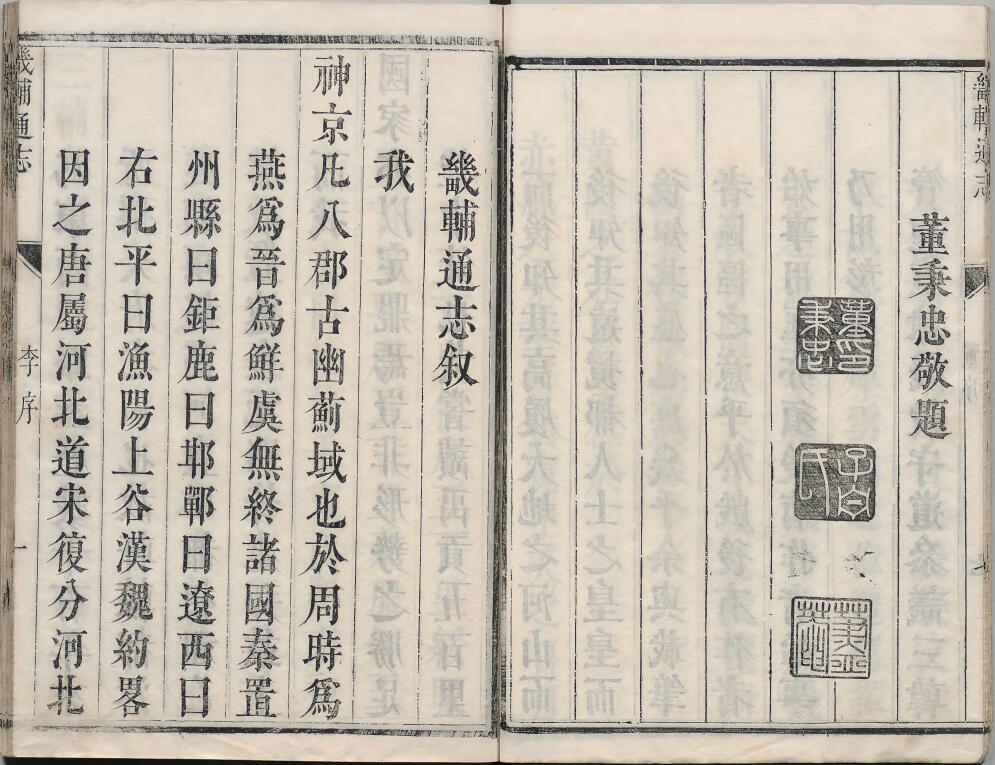 畿輔通志
董秉忠敬題
董秉忠印
畿輔通志叙
我
神京凡八郡古幽薊域也於周時爲
燕爲晉爲鮮虞無終諸國秦置
州縣曰鉅鹿曰邯鄲曰遼西曰
右北平曰漁陽上谷漢魏約畧
因之唐屬河北道宋復分河北
畿輔通志
李序
一